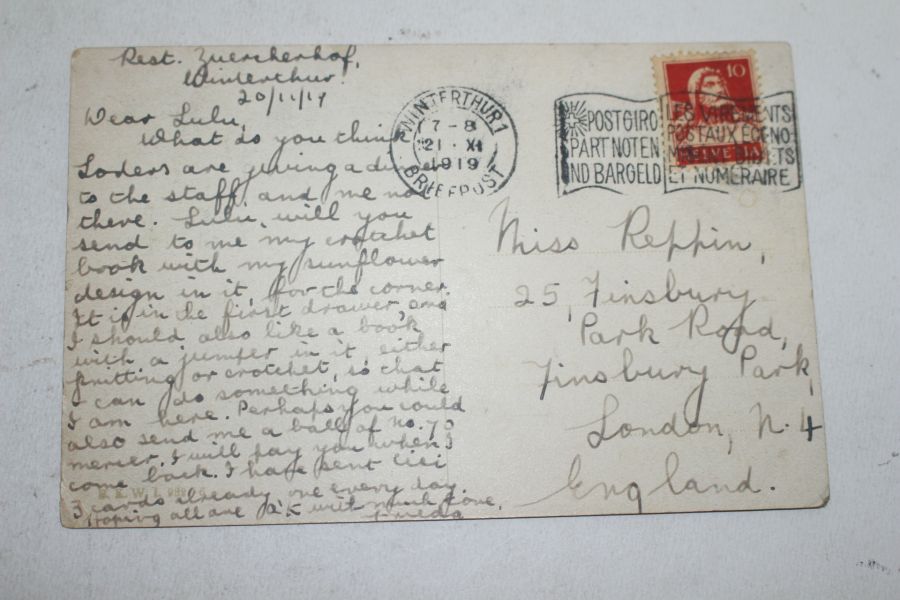 Rest. Zuercherhof,
Winterthur.
20/11/19
Dear Lulu,
What do you think
Loders are giving a dinner
to the staff and me not
there. Lulu will you
send to me my crotchet
book with my sunflower
design in it, for the corner.
It is in the first drawer, and
I should also like a book
with a jumper in it, either
knitting or crotchet, so that
I can do something while
I am here. Perhaps you could
also send me a ball of no. 70
mercer. I will pay you when I
come back. I have sent Cici
3 cards already one every day.
Hoping all are O.K with much love,
WINTERTHUR 1
7-8
21. XI
1919
BRIEFPOST
POSTGIRO
PART NOTEN
ND BARGELD
LES VIREMENTS
POSTAUX ECONO-
ET NUMÉRAIRE
10
HELVETIA
Miss Reppin,
25, Finsbury
Park Road,
Finsbury Park,
London, N. 4
England.